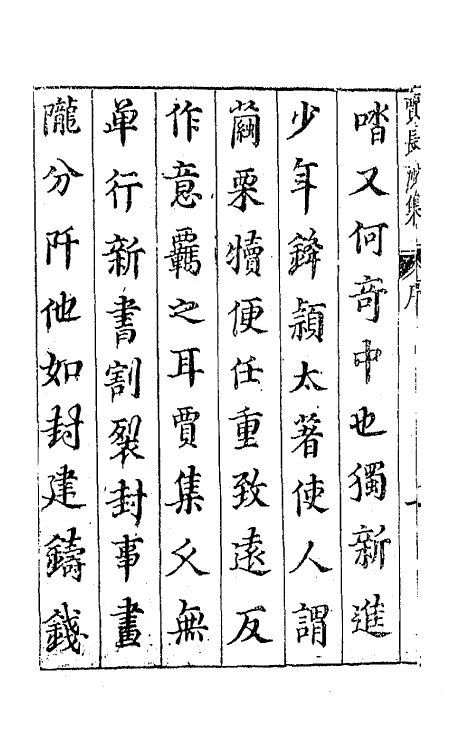 賈長沙集 序
喈又何竒中也獨新進
少年鋒頴太著使人謂
繭栗犢便任重致遠反
作意覊之耳賈集久無
单行新書割裂封事畫
隴分阡他如封建鑄錢